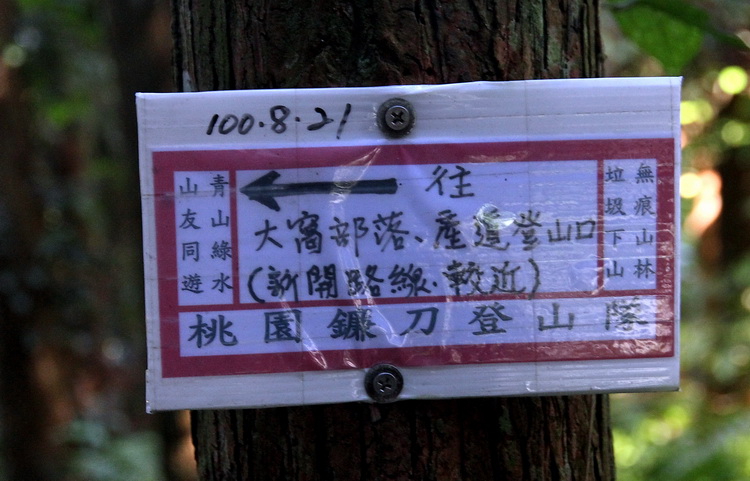 100.8.21
往
大窩部落、產道登山口
(新開路線.較近)
青山綠水
山友同遊
無痕山林
垃圾下山
桃園鐮刀登山隊